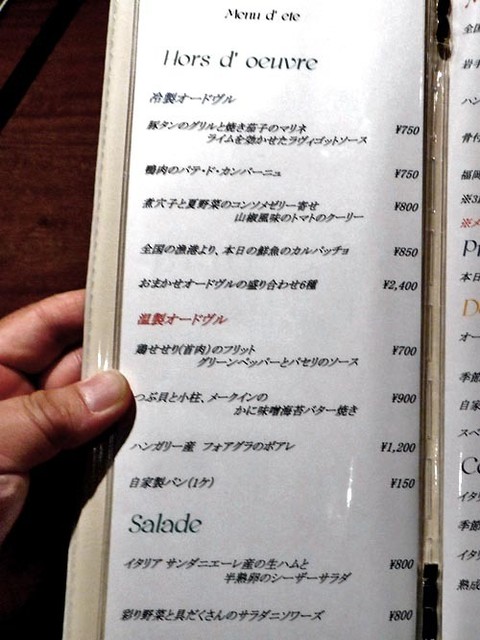 Menu d' ete
Hors d' oeuvre
冷製オードヴル
豚タンのグリルと焼き茄子のマリネ ¥750
ライムを効かせたラヴィゴットソース
鴨肉のパテ・ド・カンパーニュ ¥750
煮穴子と夏野菜のコンソメゼリー寄せ ¥800
山椒風味のトマトのクーリー
全国の漁港より、本日の鮮魚のカルパッチョ ¥850
おまかせオードヴルの盛り合わせ6種 ¥2,400
温製オードヴル
鶏せせり(首肉)のフリット ¥700
グリーンペッパーとパセリのソース
つぶ貝と小柱、メークインの ¥900
かに味噌海苔バター焼き
ハンガリー産 フォアグラのポアレ ¥1,200
自家製パン(1ケ) ¥150
Salade
イタリア サンダニエーレ産の生ハムと ¥800
半熟卵のシーザーサラダ
彩り野菜と具だくさんのサラダニソワーズ ¥800
全国
岩手
ハン
骨付
福岡
本日
オー
季節
自家
スペ
イタリ
季節
イタリ
熟成